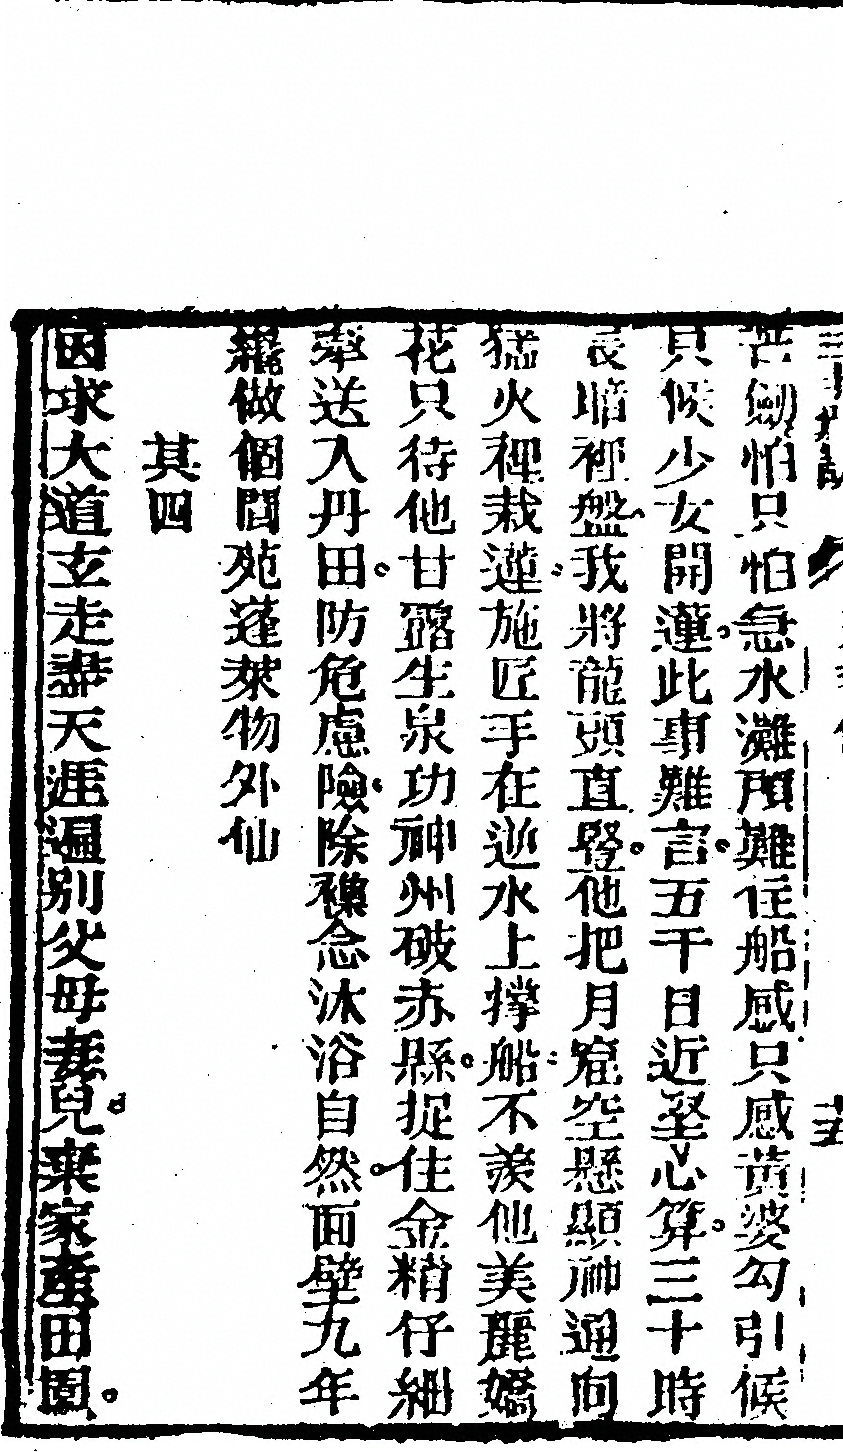 劍怕只怕急水灘頭難住船感只感黃婆勾引候
只候少女開蓮此事難言五千日近堅心算三十時
辰暗裡盤我將龍頭直豎他把月窟空懸顯神通向
猛火裡栽蓮施匠手在逆水上撐船不羨他美麗嬌
花只待他甘露生泉功神州破赤縣捉住金精仔細
牽送入丹田防危慮險除襍念沐浴自然面壁九年
纔做個閬苑蓬萊物外仙
其四
因求大道玄走盡天涯遍別父母妻兒棄家產田園